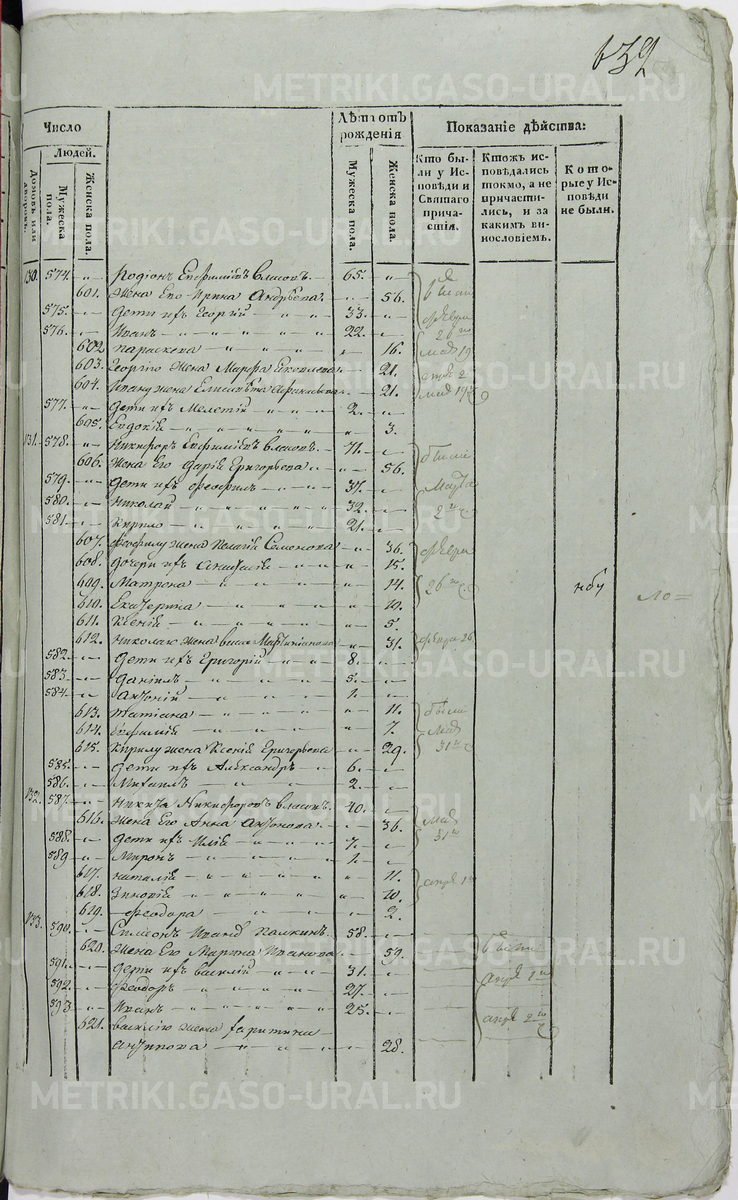 639
METRIKI.GASO-URAL.RU
Число
Людей.
Домовъ или дворовъ.
Мужеска пола.
Женска пола.
Лѣта отъ рожденія
Мужеска пола.
Женска пола.
Показаніе дѣйства:
Кто бы-
ли у Ис-
повѣди и
Святаго
прича-
стія.
Ктожъ ис-
повѣдались
токмо, а не
причасти-
лись, и за
какимъ ви-
нословіемъ.
Кото-
рые у Ис-
повѣди
не были.
130. 574. Родіонъ Евфиміевъ Власовъ 65.
601. Жена Его Ирина Андрѣева 56.
575. Дети ихъ Георгій 33.
576. Иванъ 22.
602 Параскева 16.
603. Георгію жена Марфа 21.
604. Ивану жена Елисавета 21.
577. Дети ихъ Мелетій 2.
605. Евдокія 3.
131. 578. Никифоръ Евфиміевъ Власовъ 71.
606. Жена Его Дарія Григорьева 56.
579. Дети ихъ Феофилъ 37.
580. Николай 32.
581. Кирило 21.
607. Феофилу жена Пелагія Семонова 36.
608. Дочери ихъ 15.
609. Матрона 14.
610. Екатерина 10.
611. Ксенія 5.
612. Николаю жена 31.
582. Дети ихъ Григорій 8.
583. Даніилъ 5.
584. Антоній 1.
613. Татіана 11.
614. Евфимія 7.
615. Кирилу жена Ксенія Григорьева 29.
585. Дети ихъ Александръ 6.
586. Михаилъ 2.
132. 587. Никита Никифоровъ Власовъ 40.
616. Жена Его Анна Антонова 36.
588. Дети ихъ Илія 7.
589 Миронъ 1.
617. Наталія 11.
618. Зиновія 10.
619. Феодора 2.
133. 590. Симеонъ Ивановъ Халкинъ 58.
620. Жена Его Марина Иванова 59.
591. Дети ихъ Василій 31.
592. Феодоръ 27.
593. Иванъ 25.
621. Василію жена Харитина
Антипова 28.
были
Февра
26
мая 19
были
Марта
2
Февра
26
нбу
были
мая
31
мая
31
были
апре 1
апре 2
METRIKI.GASO-URAL.RU